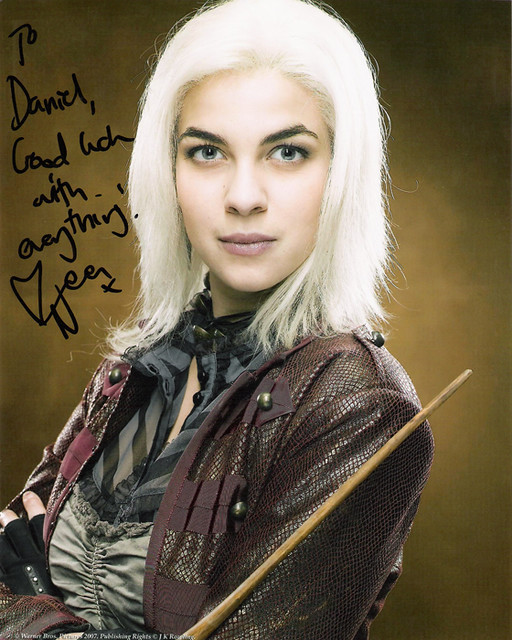 To
Daniel,
Good luck
with
everything!
x
© Warner Bros. Pictures 2007. Publishing Rights © J K Rowling